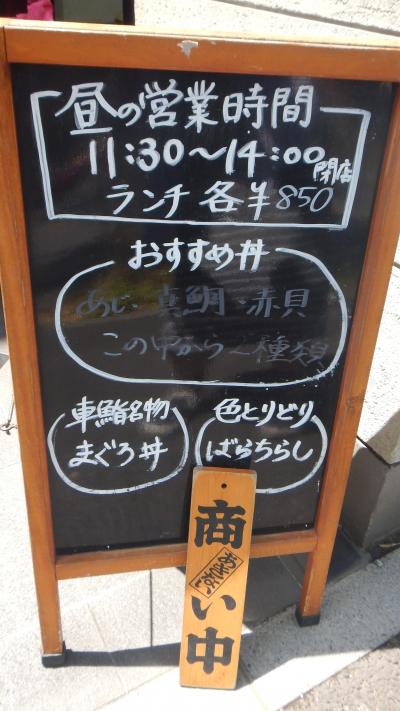 昼の営業時間
11:30～14:00 閉店
ランチ 各¥850
おすすめ丼
あじ・真鯛・赤貝
この中から一種類
車鮨名物
まぐろ丼
色とりどり
ばらちらし
商い中